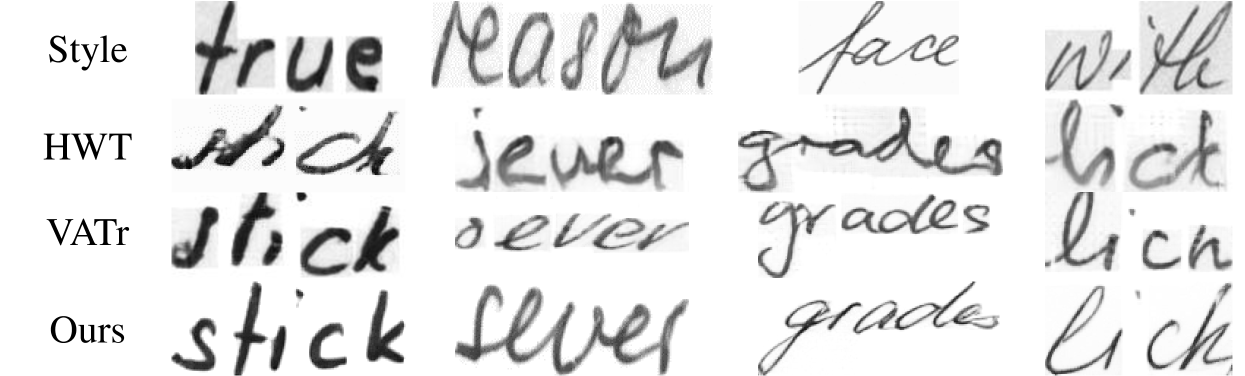 Style true reason face with
HWT stick jever grades lick
VATr stick oever grades licn
Ours stick sever grades lick